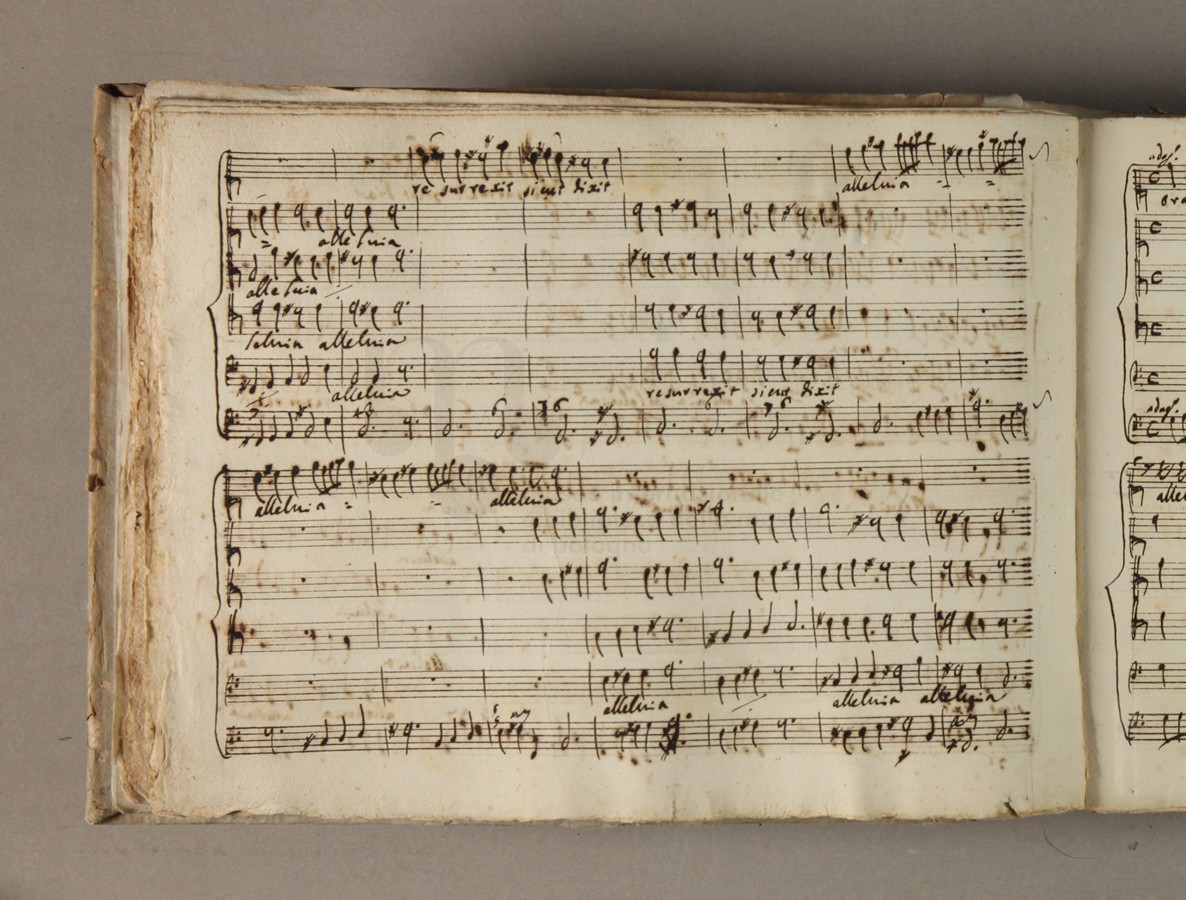 re surrexit sicut dixit
alleluia
alleluia
alleluia
leluia alleluia
resurrexit sicut dixit
alleluia
alleluia
alleluia
alleluia
alleluia alleluia
adag.
adag.